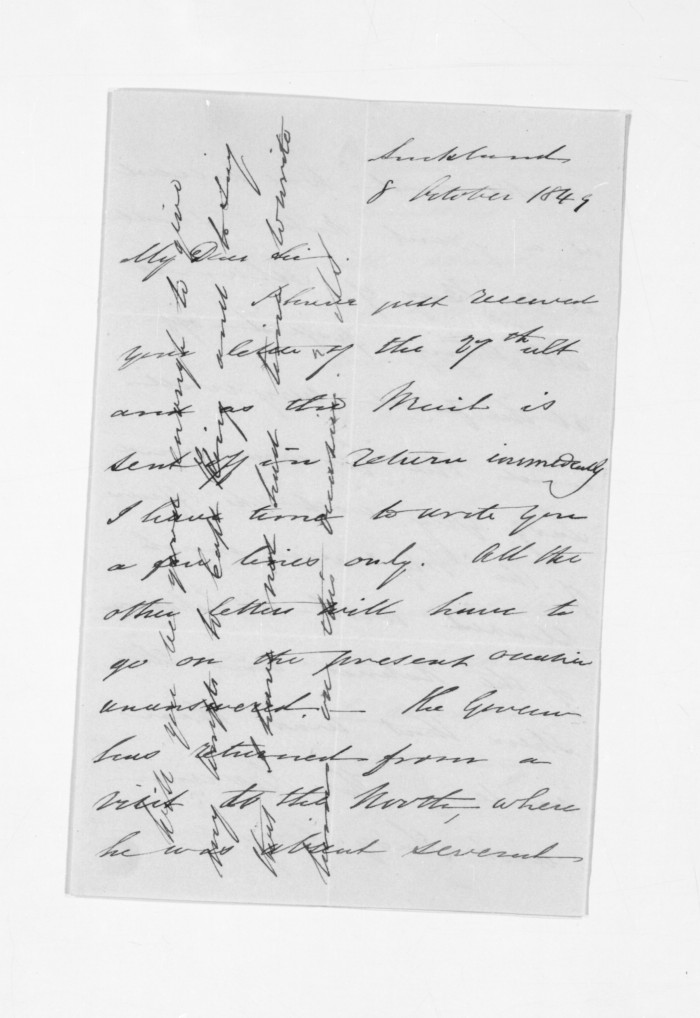 Auckland
8 October 1849
My Dear Sir
I have just received
your letter of the 27th ult
and as the Mail is
sent off in return immediately
I have time to write you
a few lines only. All the
other letters will have to
go on the present occasion
unanswered — The Governor
has returned from a
visit to the North, where
he was absent several
Will you be good enough to give
my to Capt King and to say
that I have not had time to write
him on this occasion.